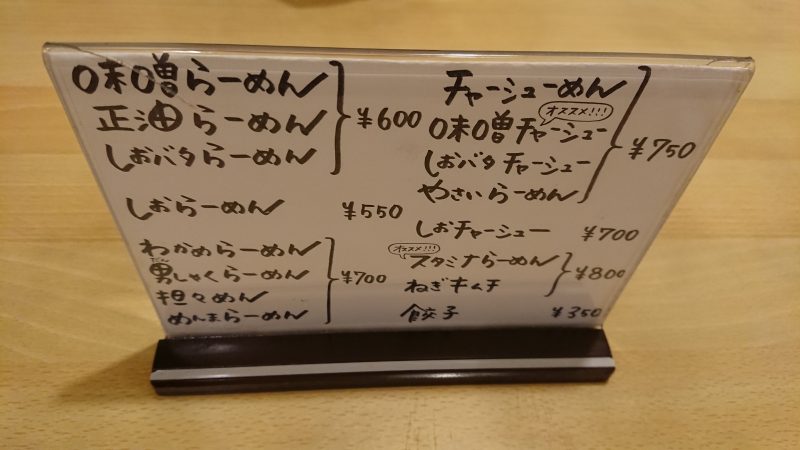 味噌らーめん
正油らーめん
しおバタらーめん
¥600
しおらーめん ¥550
わかめらーめん
だん
男しゃくらーめん
担々めん
めんまらーめん
¥700
チャーシューめん
オススメ!!!
味噌チャーシュー
しおバタチャーシュー
やさいらーめん
¥750
しおチャーシュー ¥700
オススメ!!!
スタミナらーめん
ねぎキムチ
¥800
餃子 ¥350